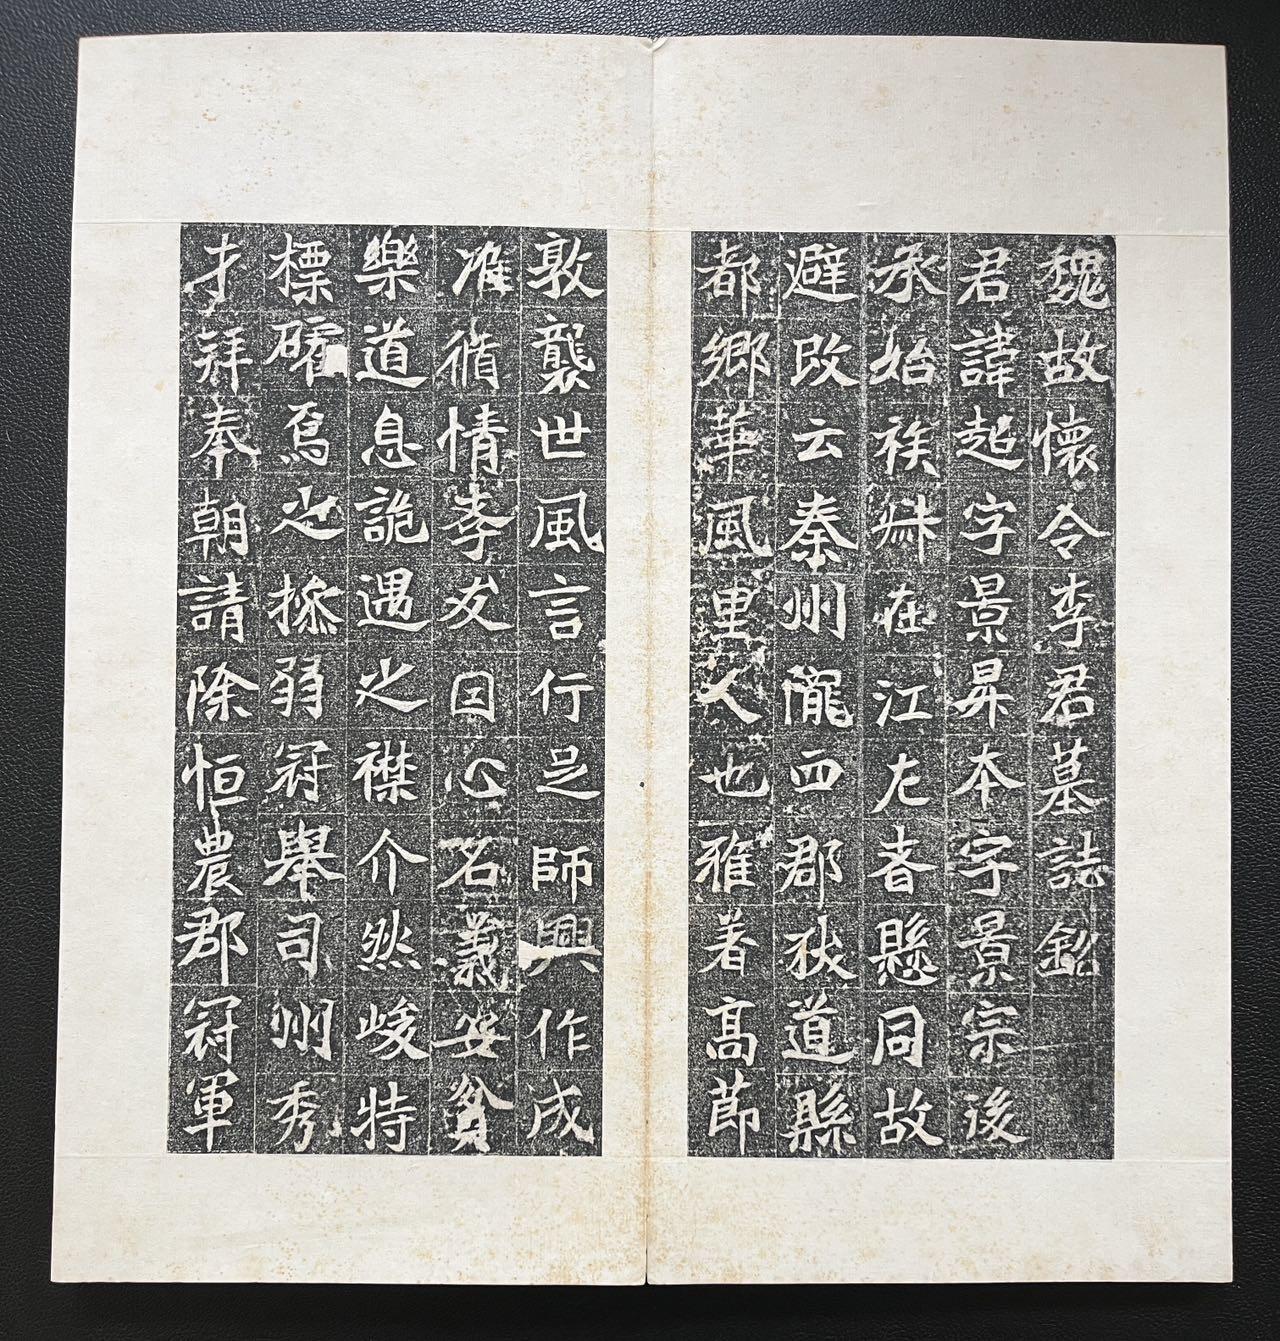 魏故懷令李君墓誌銘
君諱超字景昇本字景宗後
承始族叔在江左者懸同故
避改云秦州隴西郡狄道縣
都鄉華風里人也雅著高節
敦襲世風言行足師興作成
准循情孝友因心名義安貧
樂道息詭遇之襟介然峻特
標確焉之操弱冠舉司州秀
才拜奉朝請除恒農郡冠軍